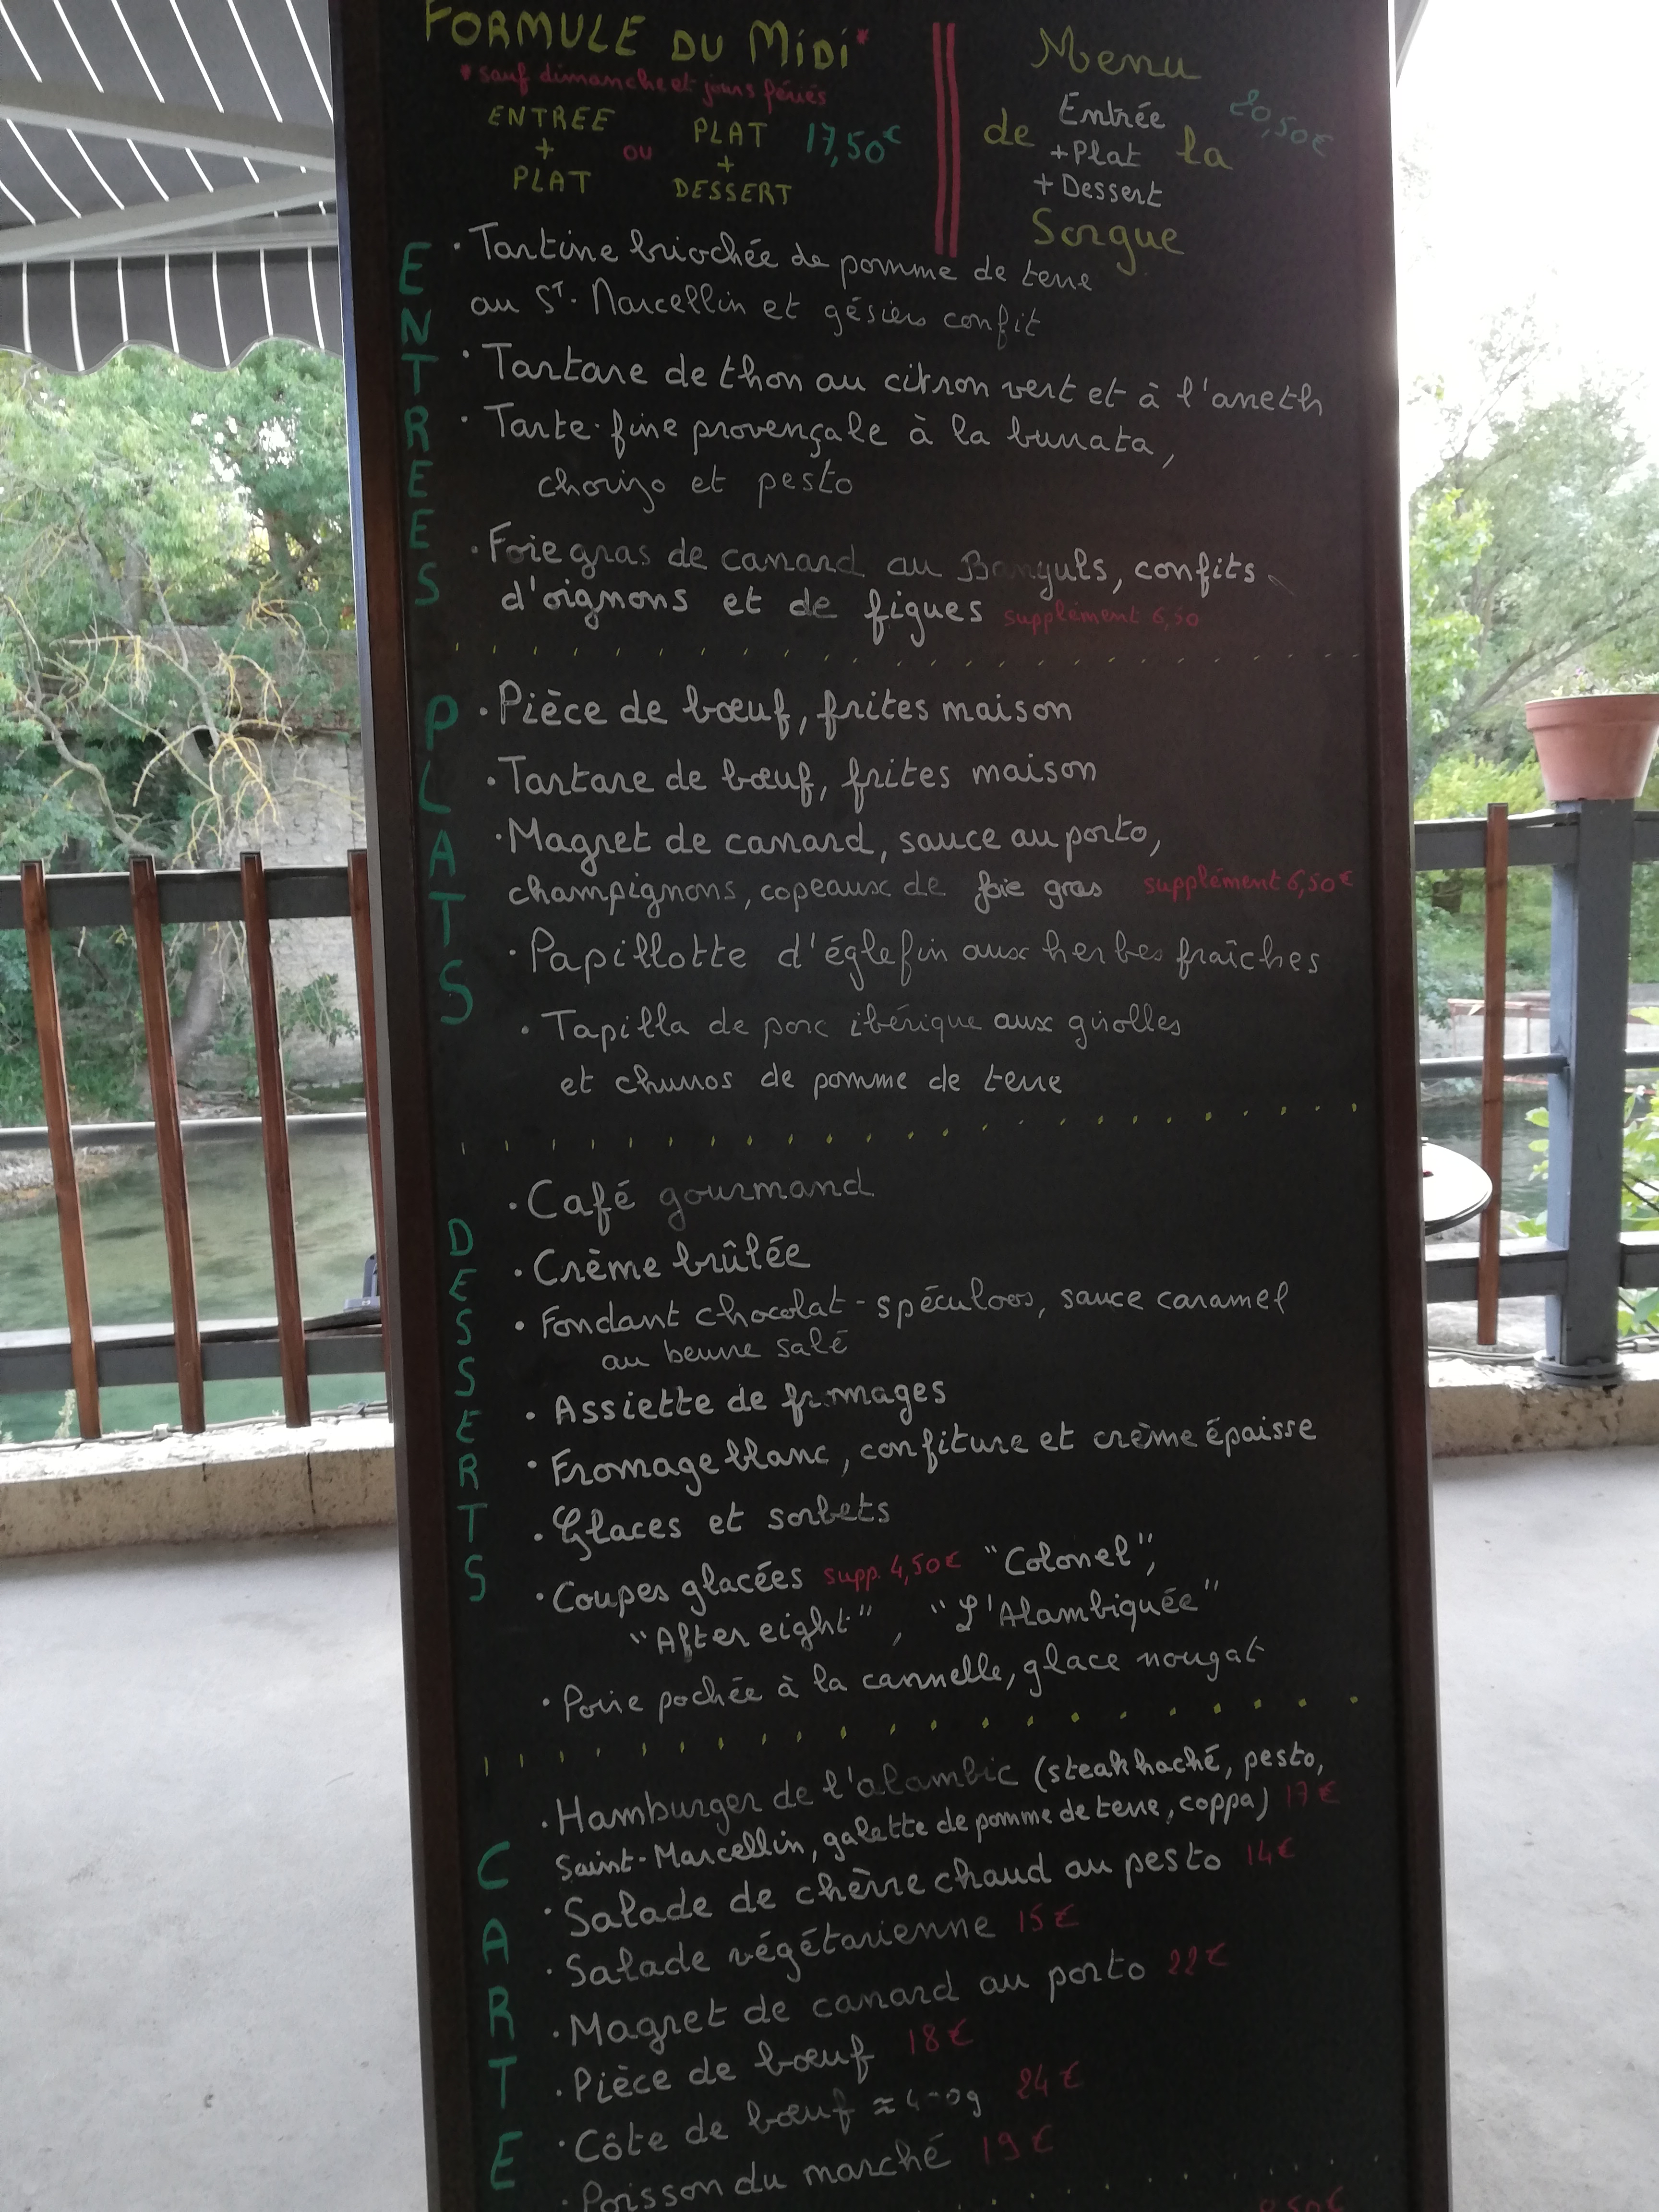 FORMULE DU MiDi*
* sauf dimanche et jours fériés
ENTREE + PLAT ou PLAT + DESSERT 17,50€
Menu
de la
Sorgue
Entrée
+Plat
+Dessert
20,50€
ENTREES
· Tartine briochée de pomme de terre
au St. Marcellin et gésiers confit
· Tartare de thon au citron vert et à l'aneth
· Tarte fine provençale à la burrata,
chorizo et pesto
· Foie gras de canard au Banyuls, confits
d'oignons et de figues supplément 6,50
PLATS
· Pièce de bœuf, frites maison
· Tartare de bœuf, frites maison
· Magret de canard, sauce au porto,
champignons, copeaux de foie gras supplément 6,50€
· Papillotte d'églefin aux herbes fraîches
· Tapilla de porc ibérique aux girolles
et churros de pomme de terre
DESSERTS
· Café gourmand
· Crème brûlée
· Fondant chocolat - spéculoos, sauce caramel
au beurre salé
· Assiette de fromages
· Fromage blanc, confiture et crème épaisse
· Glaces et sorbets
· Coupes glacées supp. 4,50€ "Colonel",
"After eight", "L'Alambiquée"
· Poire pochée à la cannelle, glace nougat
CARTE
· Hamburger de l'alambic (steak haché, pesto,
Saint-Marcellin, galette de pomme de terre, coppa) 17€
· Salade de chèvre chaud au pesto 14€
· Salade végétarienne 15€
· Magret de canard au porto 22€
· Pièce de bœuf 18€
· Côte de bœuf 24€
· Poisson du marché 19€
8,50€